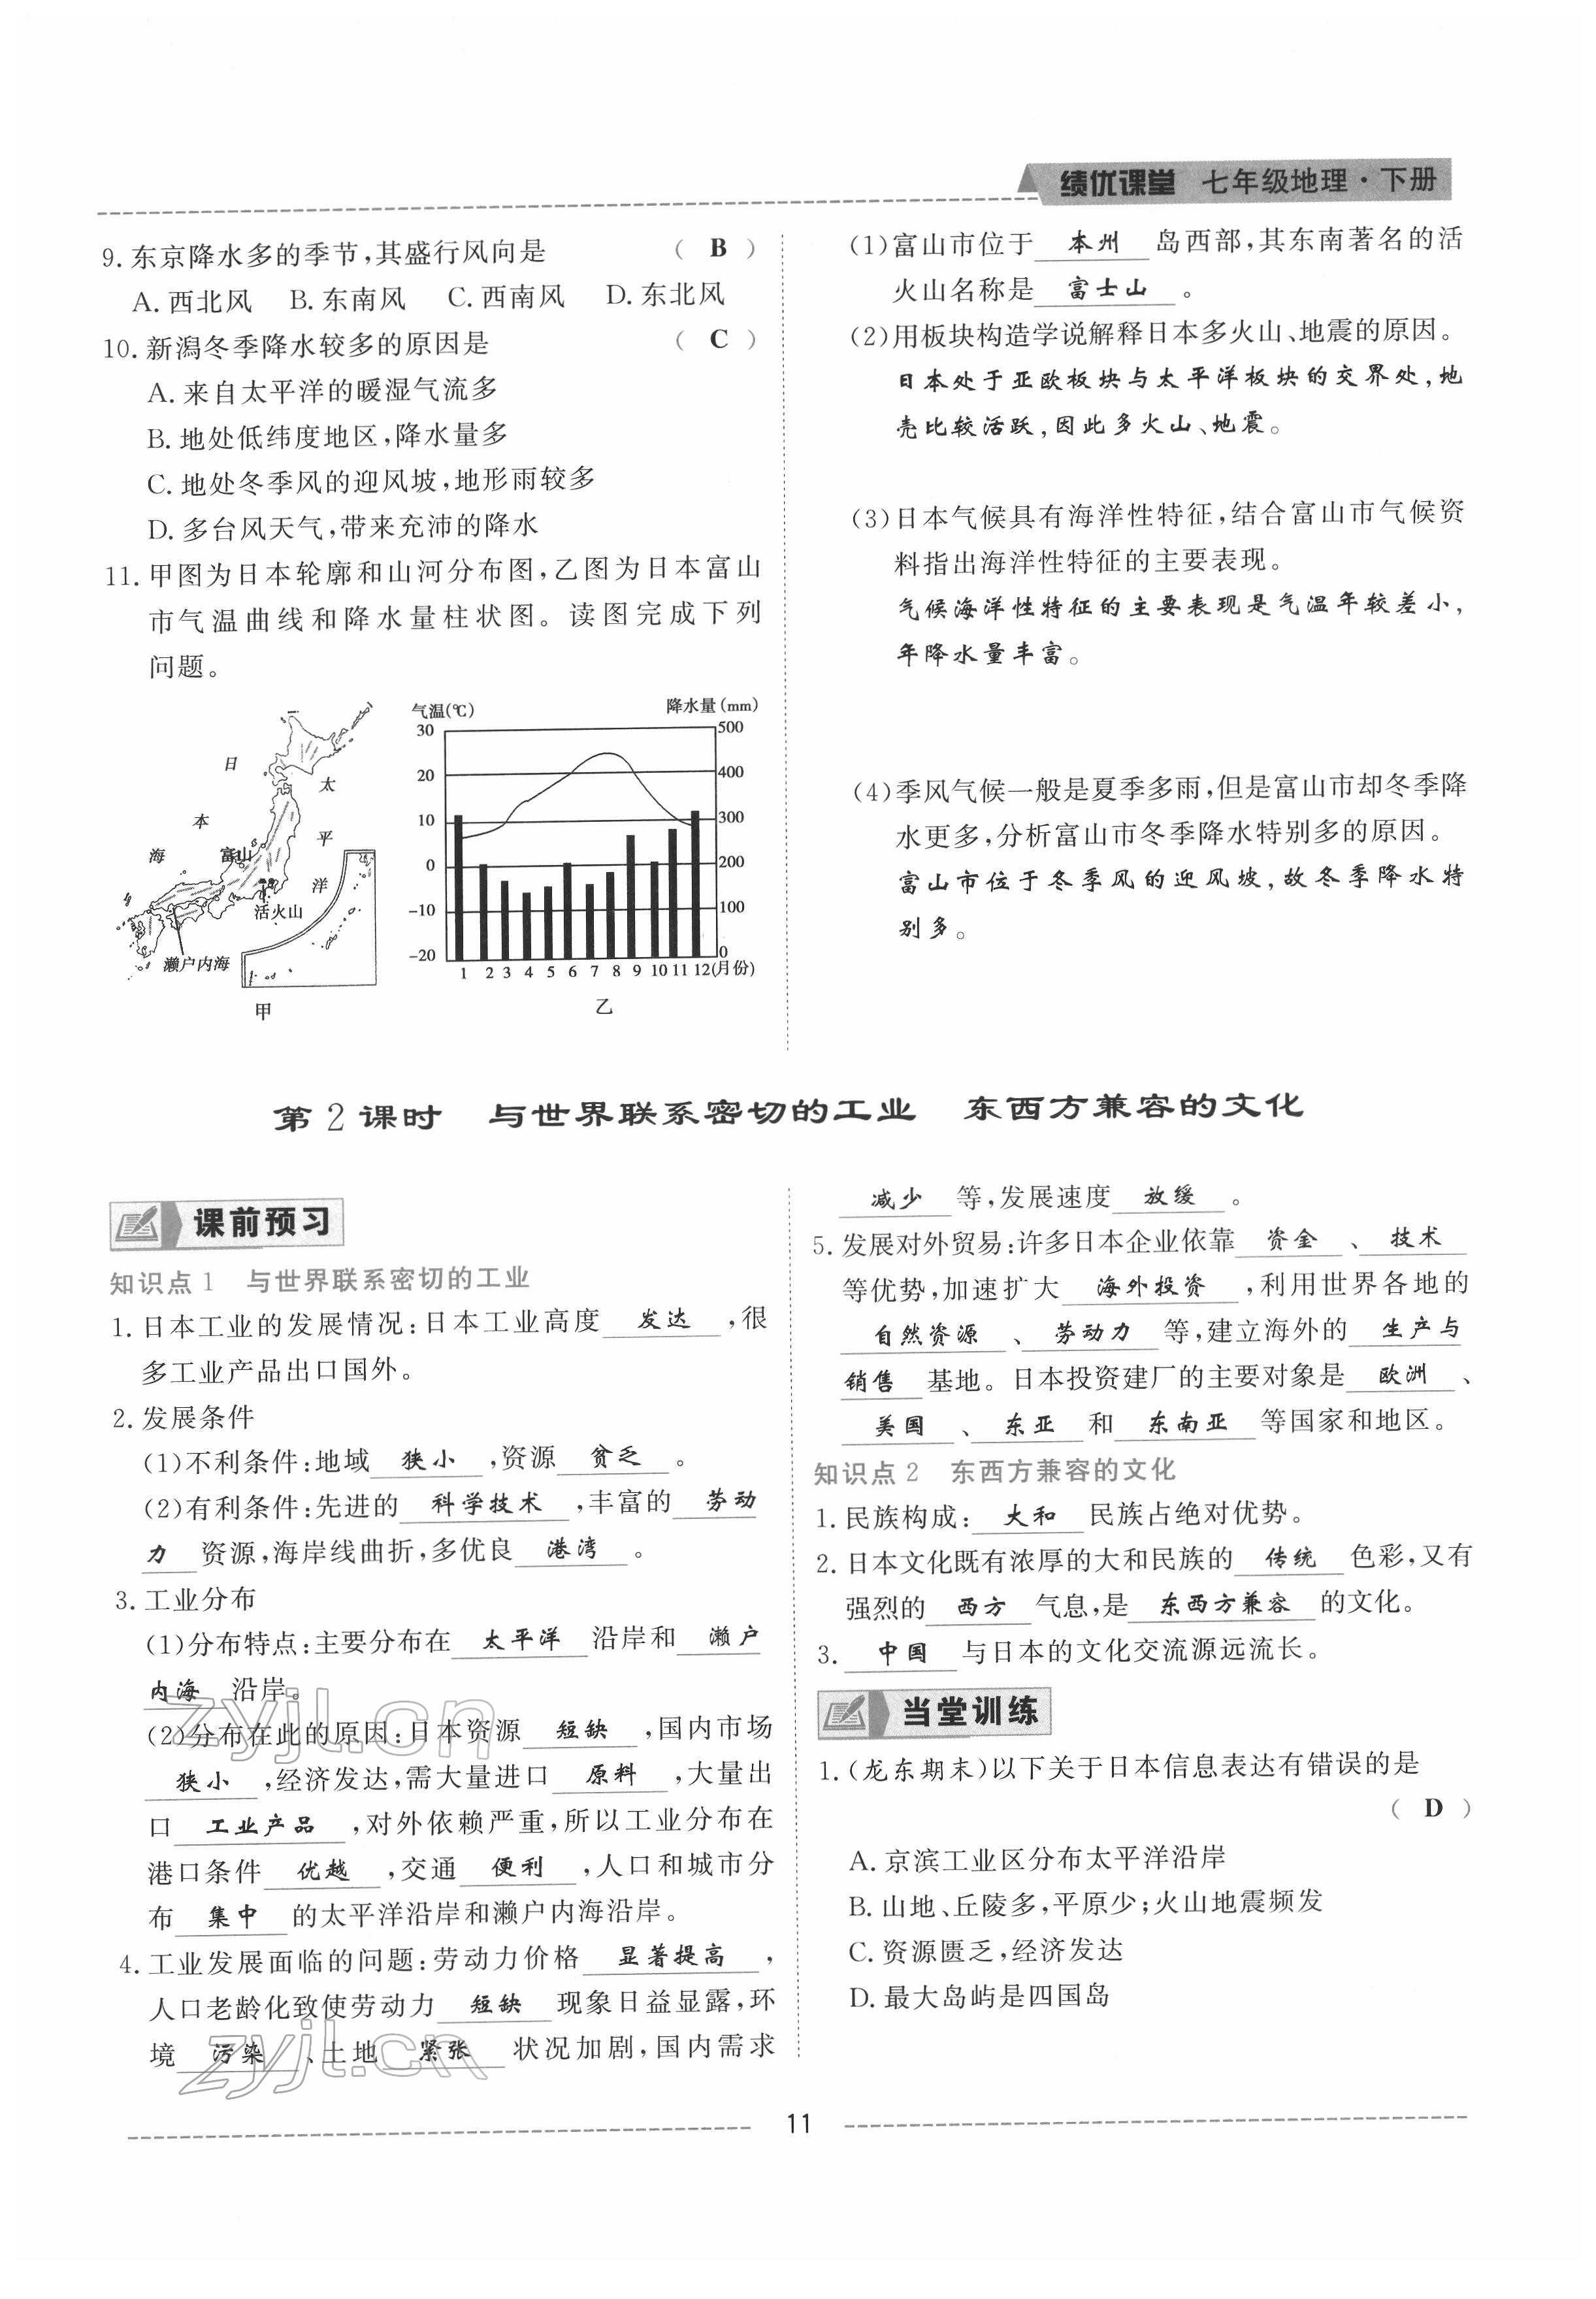 绩优课堂 七年级地理·下册
9. 东京降水多的季节,其盛行风向是 ( B )
A. 西北风 B. 东南风 C. 西南风 D. 东北风
10. 新潟冬季降水较多的原因是 ( C )
A. 来自太平洋的暖湿气流多
B. 地处低纬度地区,降水量多
C. 地处冬季风的迎风坡,地形雨较多
D. 多台风天气,带来充沛的降水
11. 甲图为日本轮廓和山河分布图,乙图为日本富山
市气温曲线和降水量柱状图。读图完成下列
问题。
日
本
海
太
平
洋
富山
活火山
濑户内海
甲
气温(℃) 降水量(mm)
30 500
20 400
10 300
0 200
-10 100
-20 0
1 2 3 4 5 6 7 8 9 10 11 12(月份)
乙
(1)富山市位于 本州 岛西部,其东南著名的活
火山名称是 富士山 。
(2)用板块构造学说解释日本多火山、地震的原因。
日本处于亚欧板块与太平洋板块的交界处,地
壳比较活跃,因此多火山、地震。
(3)日本气候具有海洋性特征,结合富山市气候资
料指出海洋性特征的主要表现。
气候海洋性特征的主要表现是气温年较差小,
年降水量丰富。
(4)季风气候一般是夏季多雨,但是富山市却冬季降
水更多,分析富山市冬季降水特别多的原因。
富山市位于冬季风的迎风坡,故冬季降水特
别多。
第2课时 与世界联系密切的工业 东西方兼容的文化
课前预习
知识点1 与世界联系密切的工业
1. 日本工业的发展情况:日本工业高度 发达 ,很
多工业产品出口国外。
2. 发展条件
(1)不利条件:地域 狭小 ,资源 贫乏 。
(2)有利条件:先进的 科学技术 ,丰富的 劳动
力 资源,海岸线曲折,多优良 港湾 。
3. 工业分布
(1)分布特点:主要分布在 太平洋 沿岸和 濑户
内海 沿岸。
(2)分布在此的原因:日本资源 短缺 ,国内市场
狭小 ,经济发达,需大量进口 原料 ,大量出
口 工业产品 ,对外依赖严重,所以工业分布在
港口条件 优越 ,交通 便利 ,人口和城市分
布 集中 的太平洋沿岸和濑户内海沿岸。
4. 工业发展面临的问题:劳动力价格 显著提高 ,
人口老龄化致使劳动力 短缺 现象日益显露,环
境 污染 、土地 紧张 状况加剧,国内需求
减少 等,发展速度 放缓 。
5. 发展对外贸易:许多日本企业依靠 资金 、 技术
等优势,加速扩大 海外投资 ,利用世界各地的
自然资源 、 劳动力 等,建立海外的 生产与
销售 基地。日本投资建厂的主要对象是 欧洲 、
美国 、 东亚 和 东南亚 等国家和地区。
知识点2 东西方兼容的文化
1. 民族构成: 大和 民族占绝对优势。
2. 日本文化既有浓厚的大和民族的 传统 色彩,又有
强烈的 西方 气息,是 东西方兼容 的文化。
3. 中国 与日本的文化交流源远流长。
当堂训练
1. (龙东期末)以下关于日本信息表达有错误的是
( D )
A. 京滨工业区分布太平洋沿岸
B. 山地、丘陵多,平原少;火山地震频发
C. 资源匮乏,经济发达
D. 最大岛屿是四国岛
zyjl.cn
zyjl.cn
11